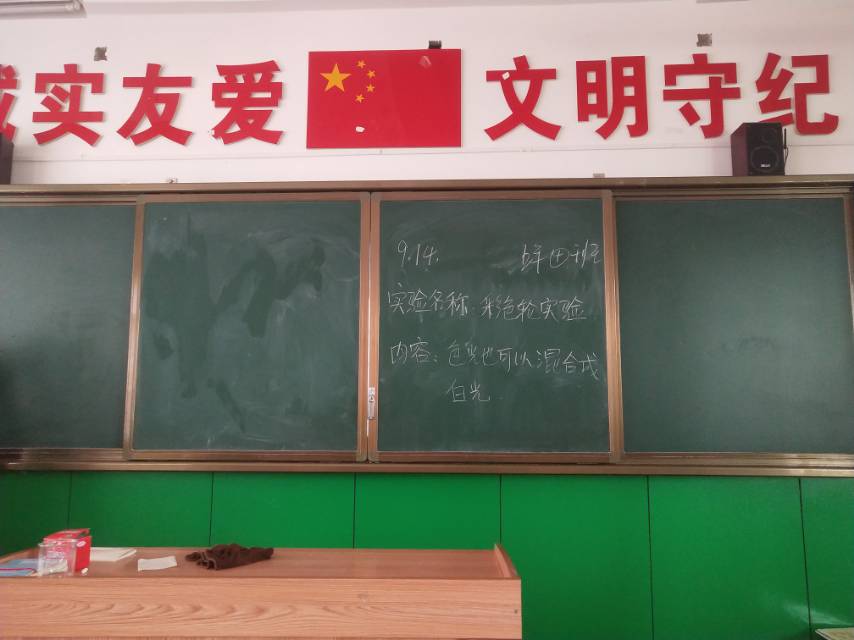 实友爱 文明守纪
9.14.
实验名称:彩色轮实验
内容:色光也可以混合成
白光